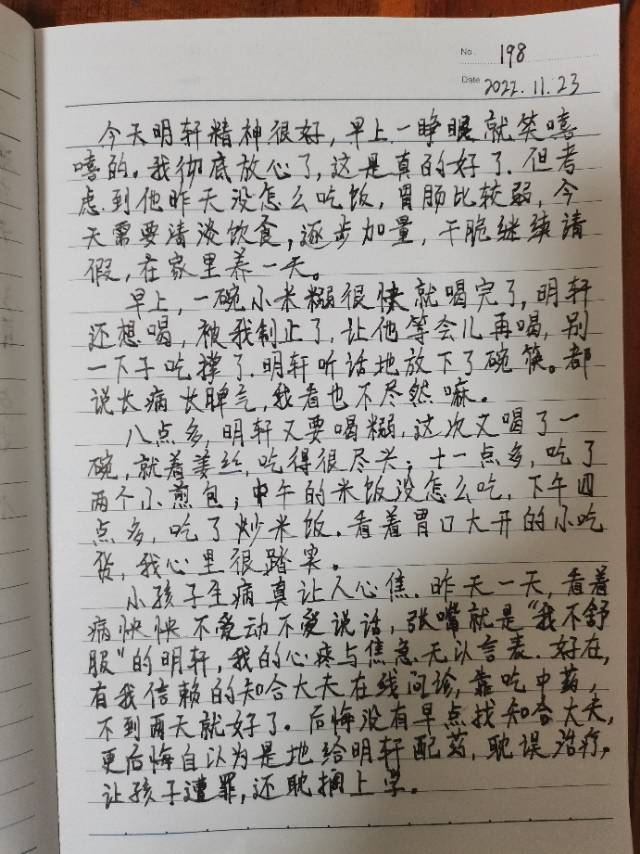 No. 198
Date 2022.11.23
今天明轩精神很好,早上一睁眼就笑嘻
嘻的。我彻底放心了,这是真的好了.但考
虑到他昨天没怎么吃饭,胃肠比较弱,今
天需要清淡饮食,逐步加量,干脆继续请
假,在家里养一天。
早上,一碗小米糊很快就喝完了,明轩
还想喝,被我制止了,让他等会儿再喝,别
一下子吃撑了.明轩听话地放下了碗筷。都
说长病长脾气,我看也不尽然嘛。
八点多,明轩又要喝糊,这次又喝了一
碗,就着姜丝,吃得很尽兴;十一点多,吃了
两个小煎包;中午的米饭没怎么吃,下午四
点多,吃了炒米饭.看着胃口大开的小吃
货,我心里很踏实。
小孩子生病真让人心焦.昨天一天,看着
病怏怏不爱动不爱说话,张嘴就是“我不舒
服”的明轩,我的心疼与焦急无以言表.好在,
有我信赖的知合大夫在线问诊,靠吃中药,
不到两天就好了。后悔没有早点找知合大夫,
更后悔自以为是地给明轩配药,耽误治疗,
让孩子遭罪,还耽搁上学。